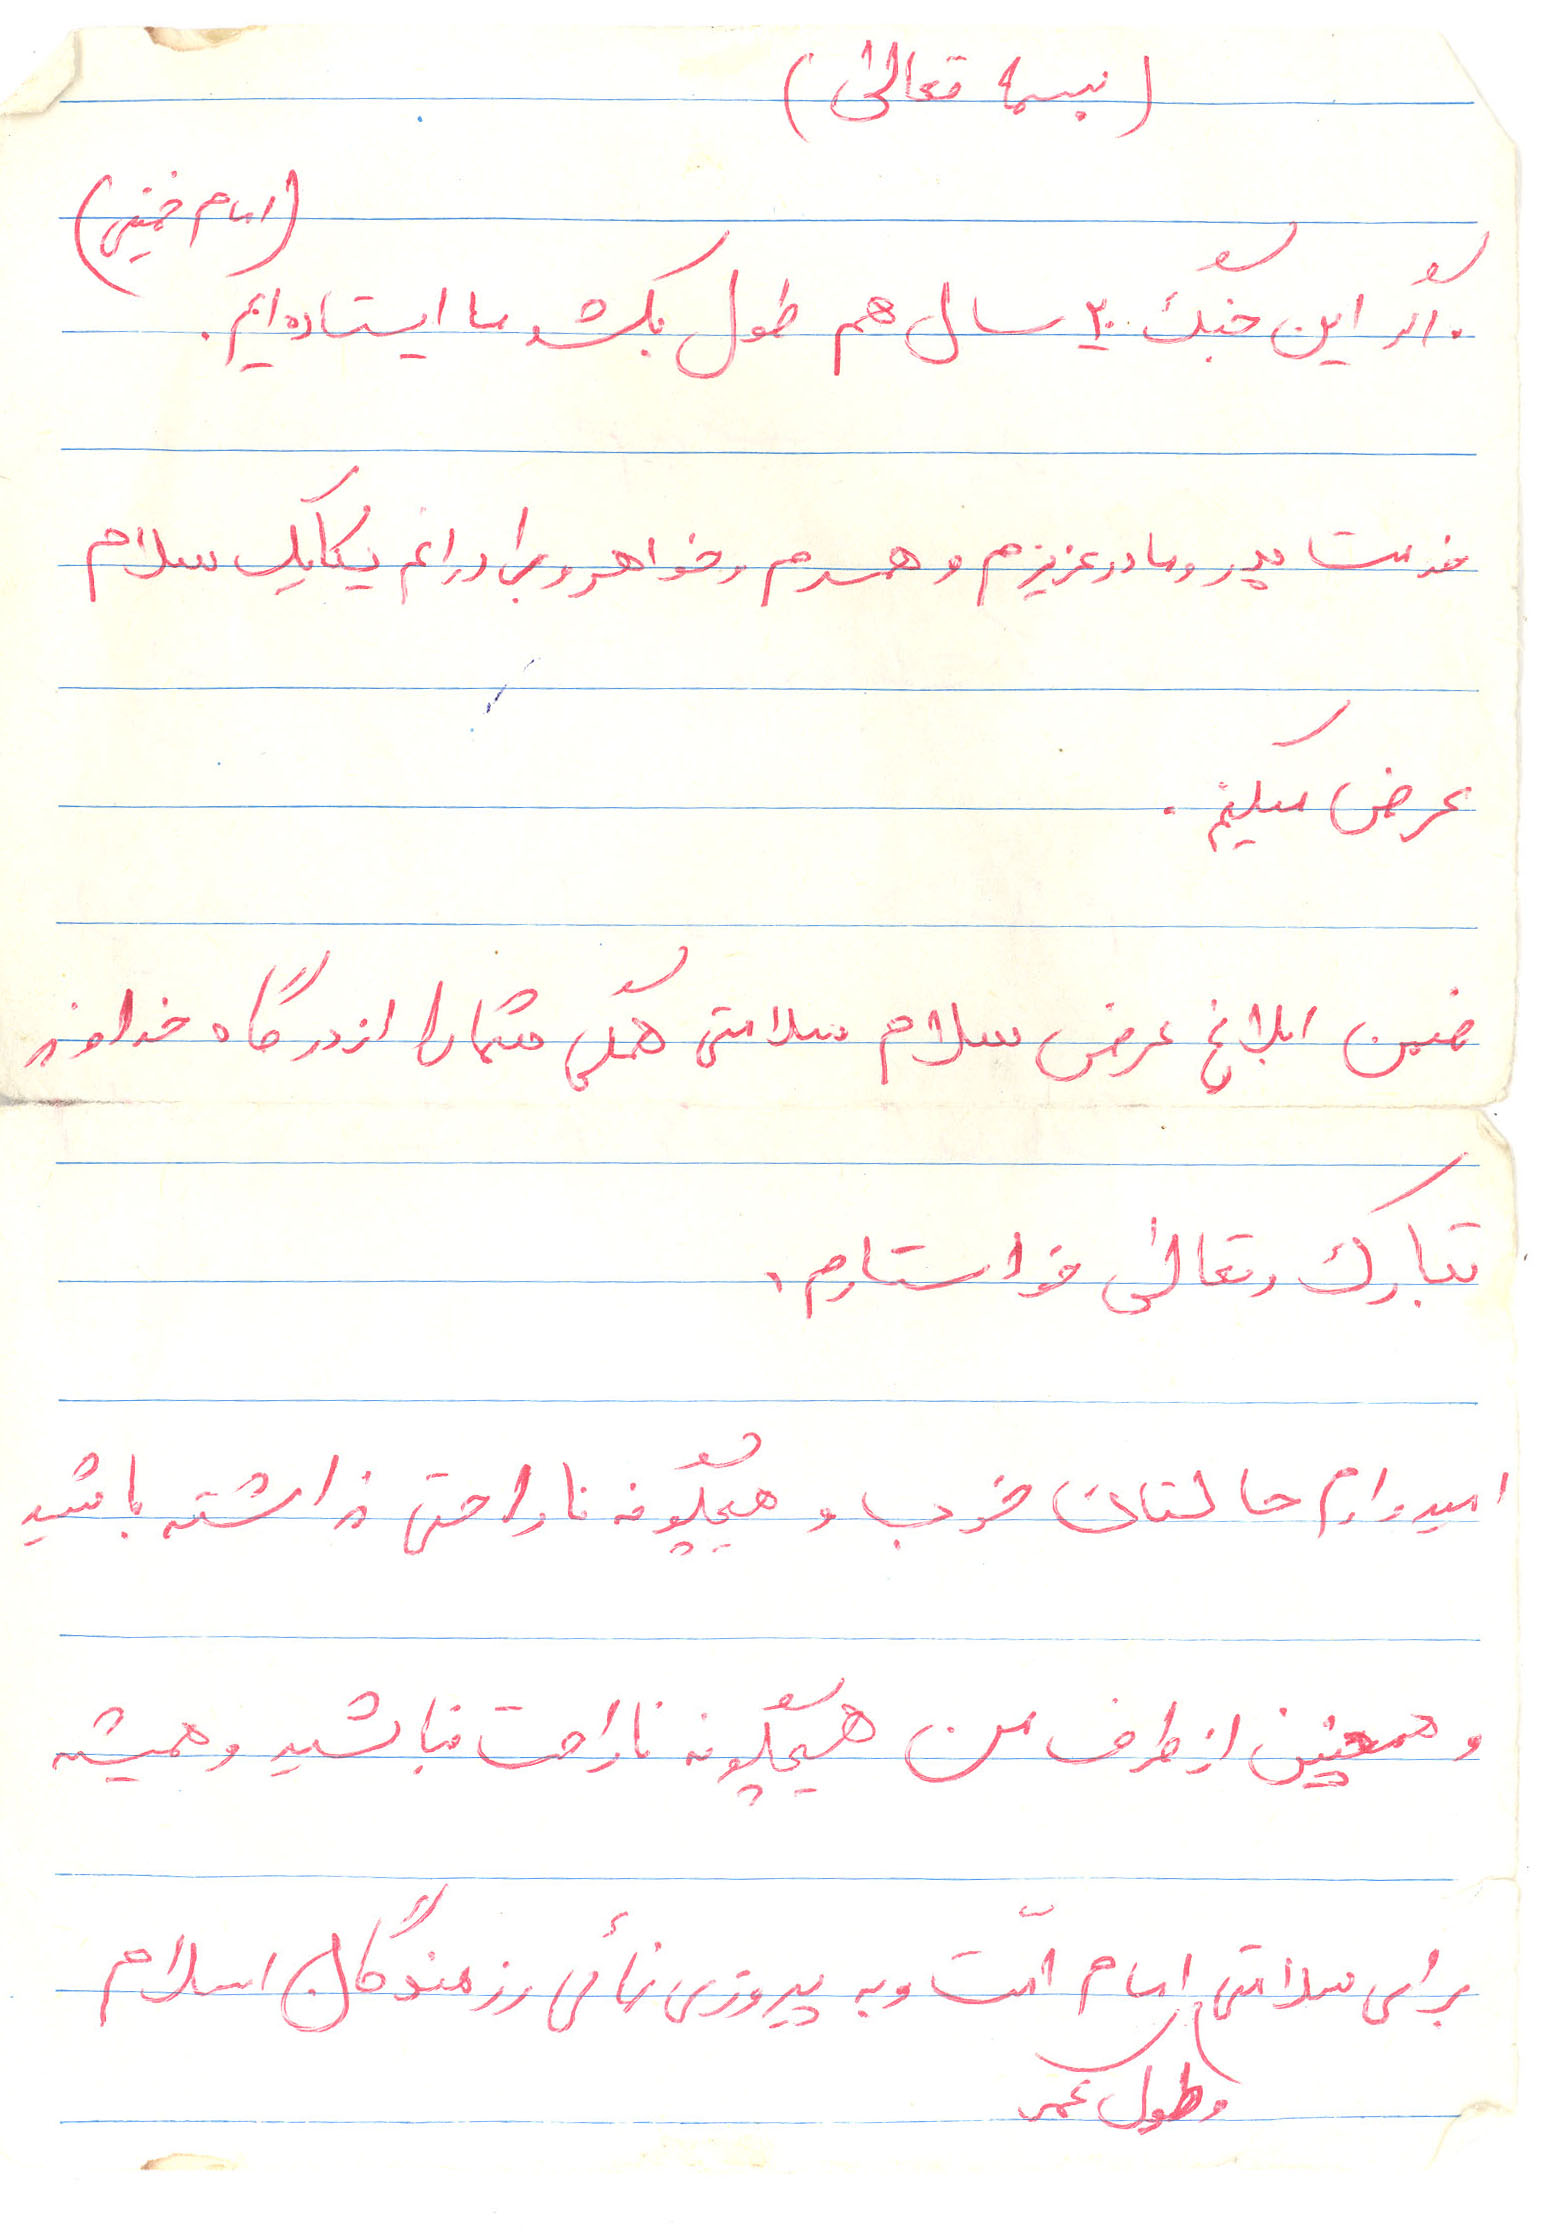 (بسمه تعالیٰ)
(امام خمینی)
اگر این جنگ ۲۰ سال هم طول بکشد ما ایستاده ایم.
خدمت پدر و مادر عزیزم و همسرم و خواهر و برادرانم یکایک سلام
عرض میکنم.
ضمن ابلاغ عرض سلام سلامتی همگی شما را از درگاه خداوند
تبارک و تعالیٰ خواستارم.
امیدوارم حالتان خوب و هیچگونه ناراحتی نداشته باشید
و همچنین از طرف من هیچگونه ناراحت نباشید و همیشه
برای سلامتی امام امّت و به پیروزی نهائی رزمندگان اسلام
و طول عمر